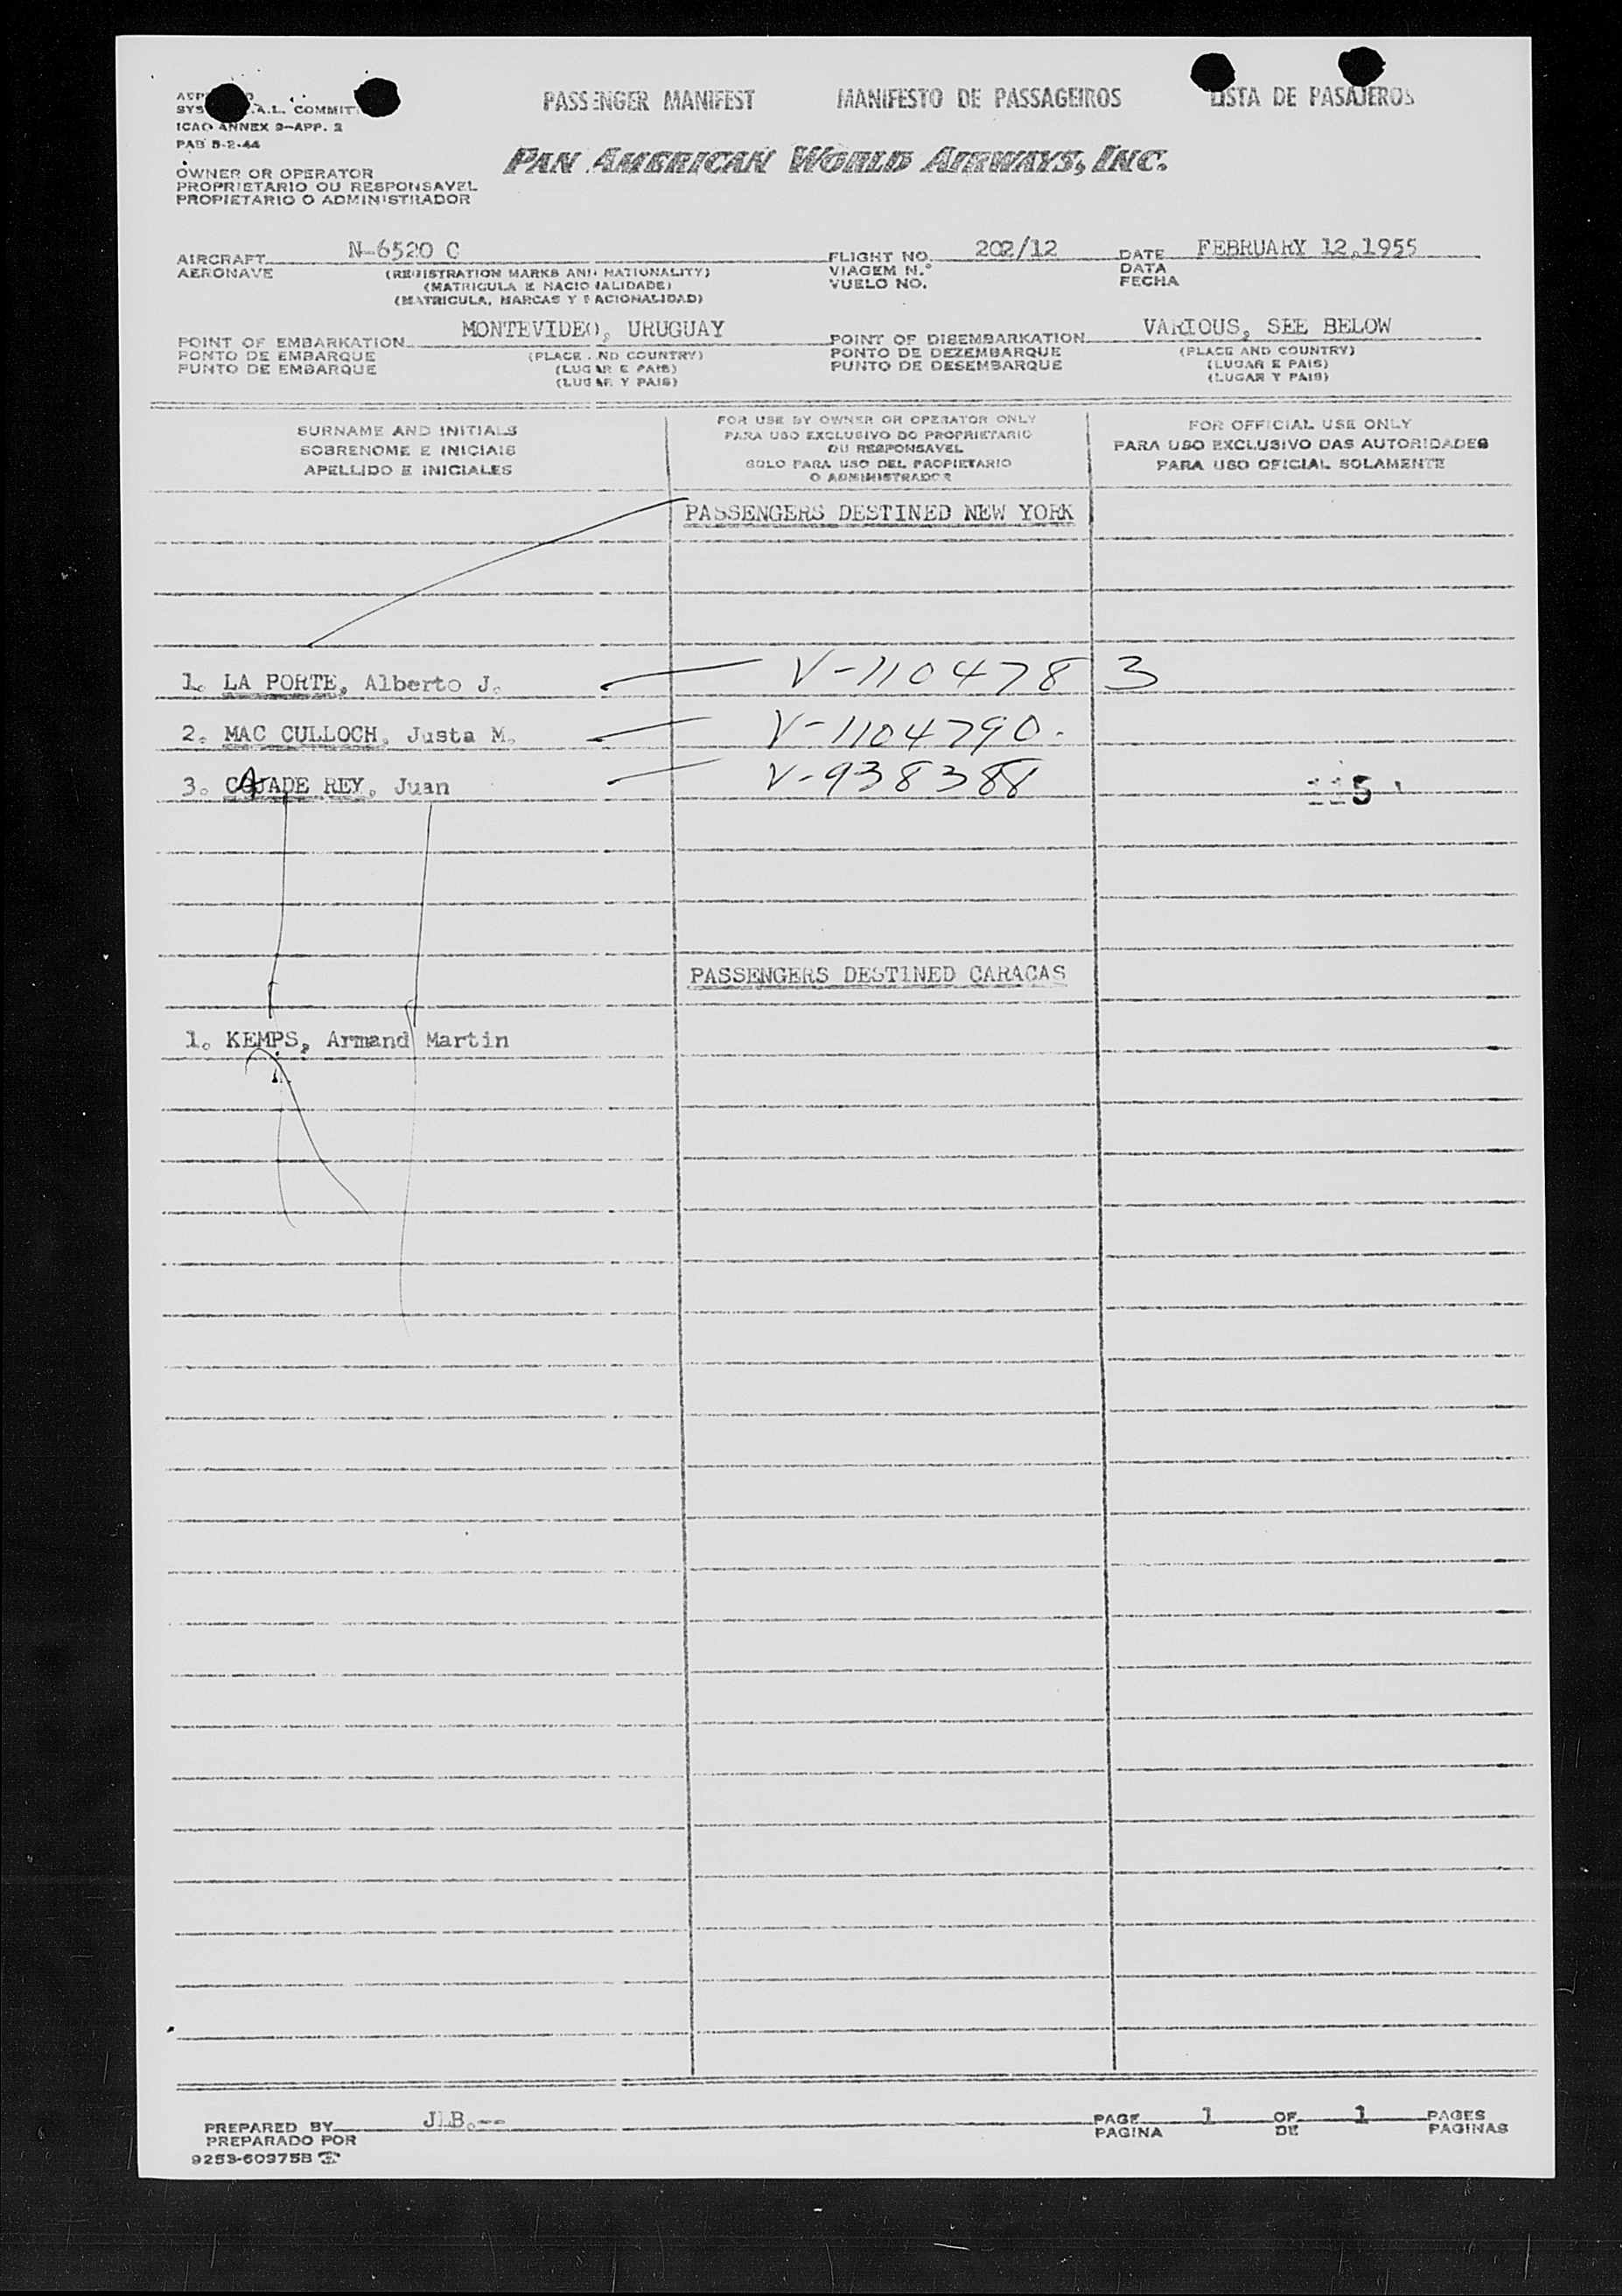 PASSENGER MANIFEST MANIFESTO DE PASSAGEIROS LISTA DE PASAJEROS
A.L. COMMIT
ICAO ANNEX 9-APP. 2
PAB 5-2-44
PAN AMERICAN WORLD AIRWAYS, INC.
OWNER OR OPERATOR
PROPRIETARIO OU RESPONSAVEL
PROPIETARIO O ADMINISTRADOR
AIRCRAFT N-6520 C FLIGHT NO. 202/12 DATE FEBRUARY 12,1955
AERONAVE (REGISTRATION MARKS AND NATIONALITY) VIAGEM N.° DATA
(MATRICULA E NACIONALIDADE) VUELO NO. FECHA
(MATRICULA, MARCAS Y NACIONALIDAD)
POINT OF EMBARKATION MONTEVIDEO, URUGUAY POINT OF DISEMBARKATION VARIOUS, SEE BELOW
PONTO DE EMBARQUE (PLACE AND COUNTRY) PONTO DE DEZEMBARQUE (PLACE AND COUNTRY)
PUNTO DE EMBARQUE (LUGAR E PAIS) PUNTO DE DESEMBARQUE (LUGAR E PAIS)
(LUGAR Y PAIS) (LUGAR Y PAIS)
SURNAME AND INITIALS
SOBRENOME E INICIAIS
APELLIDO E INICIALES
FOR USE BY OWNER OR OPERATOR ONLY
PARA USO EXCLUSIVO DO PROPRIETARIO
OU RESPONSAVEL
SOLO PARA USO DEL PROPIETARIO
O ADMINISTRADOR
FOR OFFICIAL USE ONLY
PARA USO EXCLUSIVO DAS AUTORIDADES
PARA USO OFICIAL SOLAMENTE
PASSENGERS DESTINED NEW YORK
1. LA PORTE, Alberto J. V-1104783
2. MAC CULLOCH, Justa M. V-1104790.
3. CAJADE REY, Juan V-938388
PASSENGERS DESTINED CARACAS
1. KEMPS, Armand Martin
PREPARED BY JLB.-- PAGE 1 OF 1 PAGES
PREPARADO POR PAGINA DE PAGINAS
9253-60975B